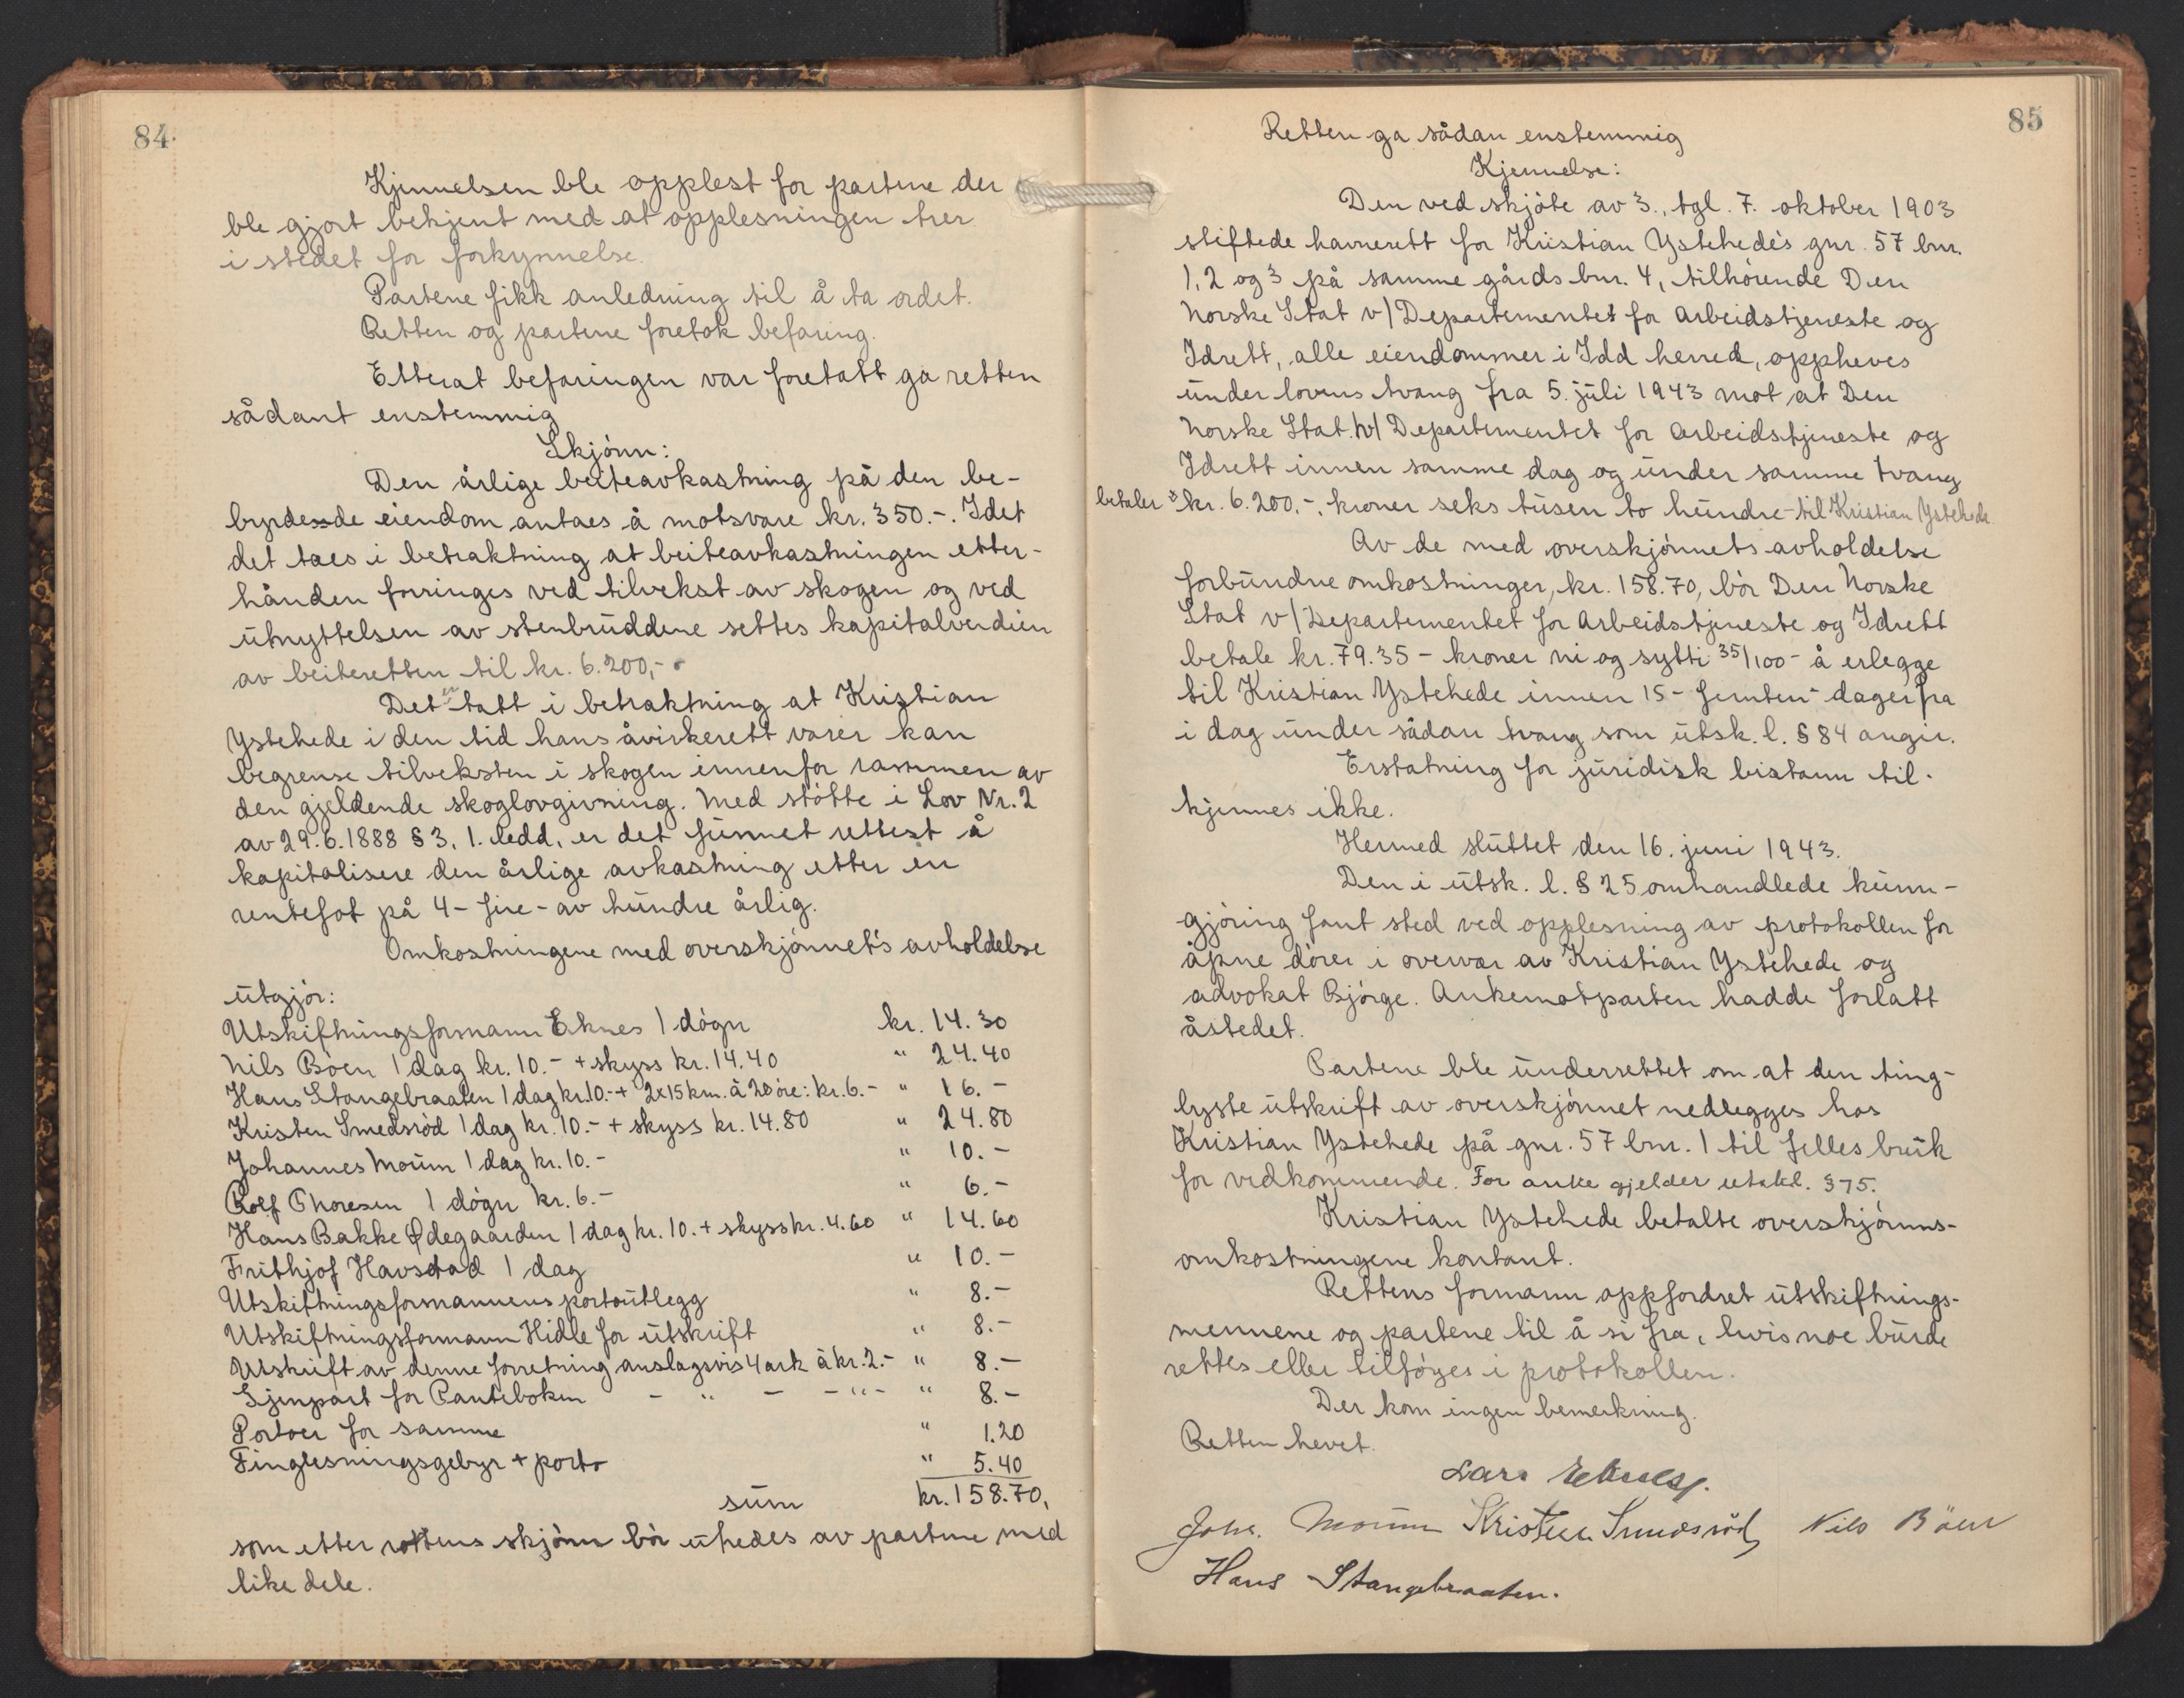 84.
Kjennelsen ble opplest for partene der
ble gjort bekjent med at opplesningen trer
i stedet for forkynnelse.
Partene fikk anledning til å ta ordet.
Retten og partene foretok befaring.
Etterat befaringen var foretatt ga retten
sådant enstemmig
Skjønn:
Den årlige beiteavkastning på den be-
byrdende eiendom antaes å motsvare kr. 350.-. Idet
det taes i betraktning at beiteavkastningen etter-
hånden forringes ved tilvekst av skogen og ved
utnyttelsen av stenbruddene settes kapitalverdien
av beiteretten til kr. 6.200,-.
Det er tatt i betraktning at Kristian
Ystehede i den tid hans åvirkerett varer kan
begrense tilveksten i skogen innenfor rammen av
den gjeldende skoglovgivning. Med støtte i Lov Nr. 2
av 29.6.1888 § 3, 1. ledd, er det funnet rettest å
kapitalisere den årlige avkastning etter en
rentefot på 4 - fire - av hundre årlig.
Omkostningene med overskjønnet's avholdelse
utgjør:
Utskiftningsformann Eknes 1 døgn kr. 14.30
Nils Bøen 1 dag kr. 10.- + skyss kr. 14.40 " 24.40
Hans Stangebraaten 1 dag kr. 10.- + 2x15 km. à 20 øre: kr. 6.- " 16.-
Kristen Smedsrød 1 dag kr. 10.- + skyss kr. 14.80 " 24.80
Johannes Moum 1 dag kr. 10.- " 10.-
Rolf Thoresen 1 døgn kr. 6.- " 6.-
Hans Bakke Ødegaarden 1 dag kr. 10. + skyss kr. 4.60 " 14.60
Frithjof Havstad 1 dag " 10.-
Utskiftningsformannens portoutlegg " 8.-
Utskiftningsformann Hidle for utskrift " 8.-
Utskrift av denne forretning anslagsvis 4 ark à kr. 2.- " 8.-
Gjenpart for Panteboken - " - - " - " 8.-
Portoer for samme " 1.20
Tinglesningsgebyr + porto " 5.40
sum kr. 158.70,
som etter rettens skjønn bør utredes av partene med
like dele.
85
Retten ga sådan enstemmig
Kjennelse:
Den ved skjøte av 3., tgl. 7. oktober 1903
stiftede havnerett for Kristian Ystehede's gnr. 57 bnr.
1, 2 og 3 på samme gårds bnr. 4, tilhørende Den
Norske Stat v/ Departementet for Arbeidstjeneste og
Idrett, alle eiendommer i Idd herred, oppheves
under lovens tvang fra 5. juli 1943 mot at Den
Norske Stat v/ Departementet for Arbeidstjeneste og
Idrett innen samme dag og under samme tvang
betaler kr. 6.200.-, kroner seks tusen to hundre - til Kristian Ystehede.
Av de med overskjønnets avholdelse
forbundne omkostninger, kr. 158.70, bør Den Norske
Stat v/ Departementet for Arbeidstjeneste og Idrett
betale kr. 79.35 - kroner ni og sytti 35/100 - å erlegge
til Kristian Ystehede innen 15 - femten - dager fra
i dag under sådan tvang som utsk. l. § 84 angir.
Erstatning for juridisk bistann til-
kjennes ikke.
Hermed sluttet den 16. juni 1943.
Den i utsk. l. § 25 omhandlede kunn-
gjøring fant sted ved opplesning av protokollen for
åpne dører i overvær av Kristian Ystehede og
advokat Bjørge. Ankemotparten hadde forlatt
åstedet.
Partene ble underrettet om at den ting-
lyste utskrift av overskjønnet nedlegges hos
Kristian Ystehede på gnr. 57 bnr. 1 til felles bruk
for vedkommende. For anke gjelder utskl. § 75.
Kristian Ystehede betalte overskjønns-
omkostningene kontant.
Rettens formann oppfordret utskiftnings-
mennene og partene til å si fra, hvis noe burde
rettes eller tilføyes i protokollen.
Der kom ingen bemerkning.
Retten hevet.
Lars Eknes.
Johs. Moum Kristen Smedsrød Nils Böen
Hans Stangebraaten.